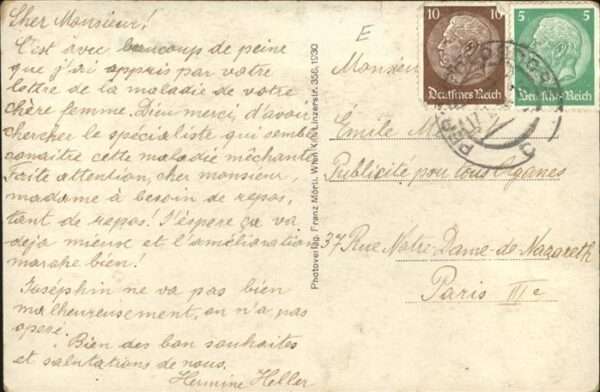 Cher Monsieur!
C'est avec beaucoup de peine
que j'ai appris par votre
lettre de la maladie de votre
chère femme. Dieu merci, d'avoir
chercher le spécialiste qui semble
conaitre cette maladie méchante.
Faite attention, cher monsieur,
madame à besoin de repos,
tant de repos! J'éspere ça va
deja mieux et l'amélioration
marche bien!
Joséphin ne va pas bien
malheureusement, on n'a pas
operé.
Bien des bon souhaites
et salutations de nous.
Hermine Heller
Photoverlag Franz Mörtl, Wien 356, 1930
E
10 10
Deutsches Reich
5 5
Deutsches Reich
Monsieur
Émile
Publicité pou tous Organes
37 Rue Notre-Dame-de Nazareth
Paris IIIe